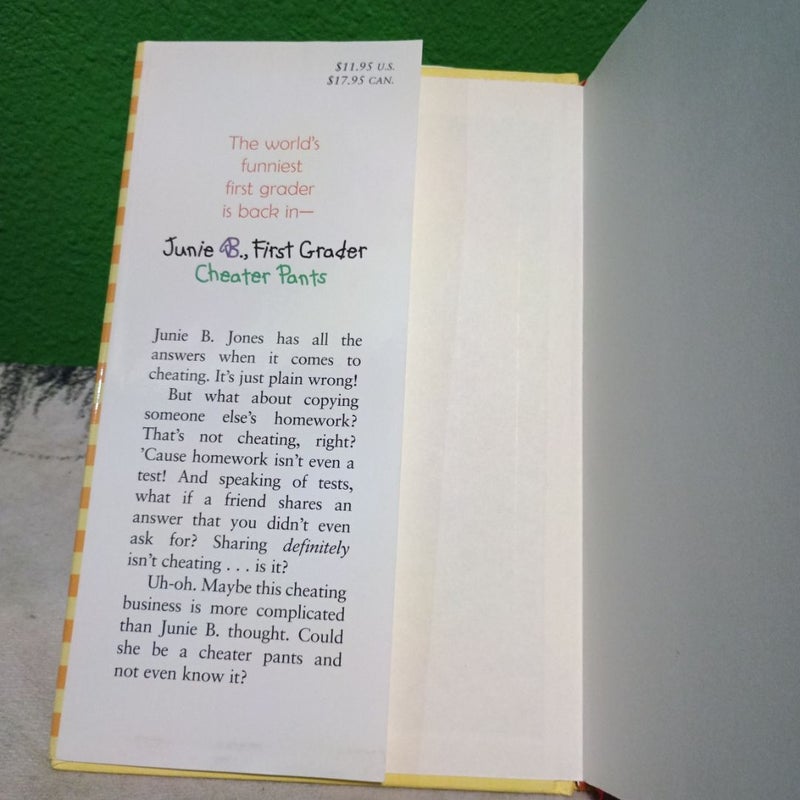 $11.95 U.S.
$17.95 CAN.
The world's
funniest
first grader
is back in—
Junie B., First Grader
Cheater Pants
Junie B. Jones has all the
answers when it comes to
cheating. It's just plain wrong!
But what about copying
someone else's homework?
That's not cheating, right?
'Cause homework isn't even a
test! And speaking of tests,
what if a friend shares an
answer that you didn't even
ask for? Sharing definitely
isn't cheating . . . is it?
Uh-oh. Maybe this cheating
business is more complicated
than Junie B. thought. Could
she be a cheater pants and
not even know it?